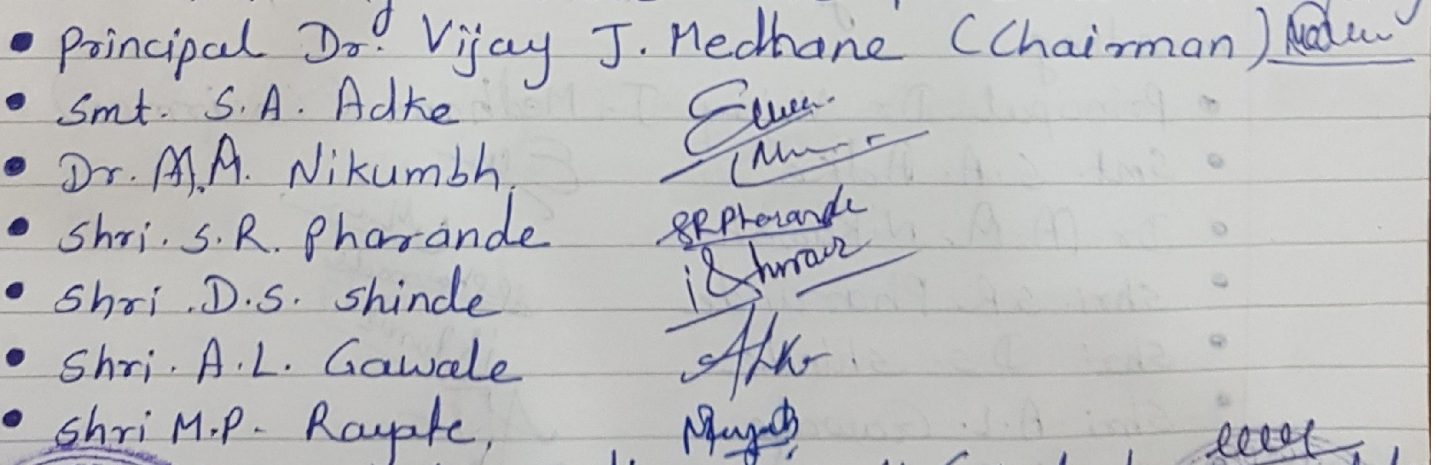 • Principal Dr. Vijay J. Medhane (Chairman)
• Smt. S.A. Adke
• Dr. A.A. Nikumbh
• Shri. S.R. Pharande SRPharande
• Shri. D.S. Shinde
• Shri. A.L. Gawale
• Shri M.P. Rayate,